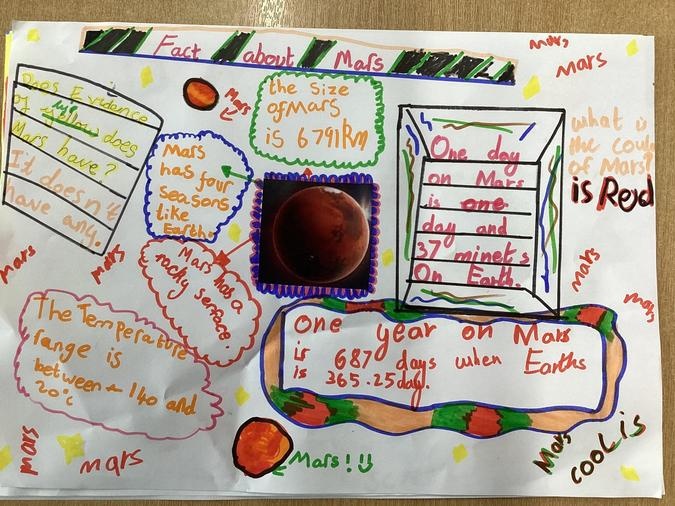 Fact about Mars
Mars
mars
Mars
the size
of Mars
is 6791km
Does Evidence
of
does
Mars have?
It doesn't
have any.
Mars
has four
seasons
like
Earth.
One day
on Mars
is one
day and
37 minets
On Earth.
what is
the
of Mars?
is Red
Mars has a
rocky serface.
mars
mars
mars
mars
The Temperature
range is
between - 140 and
20°c
One year on Mars
is 687 days when Earths
is 365.25 day.
mars
mars
Mars! !
Mars
cool is